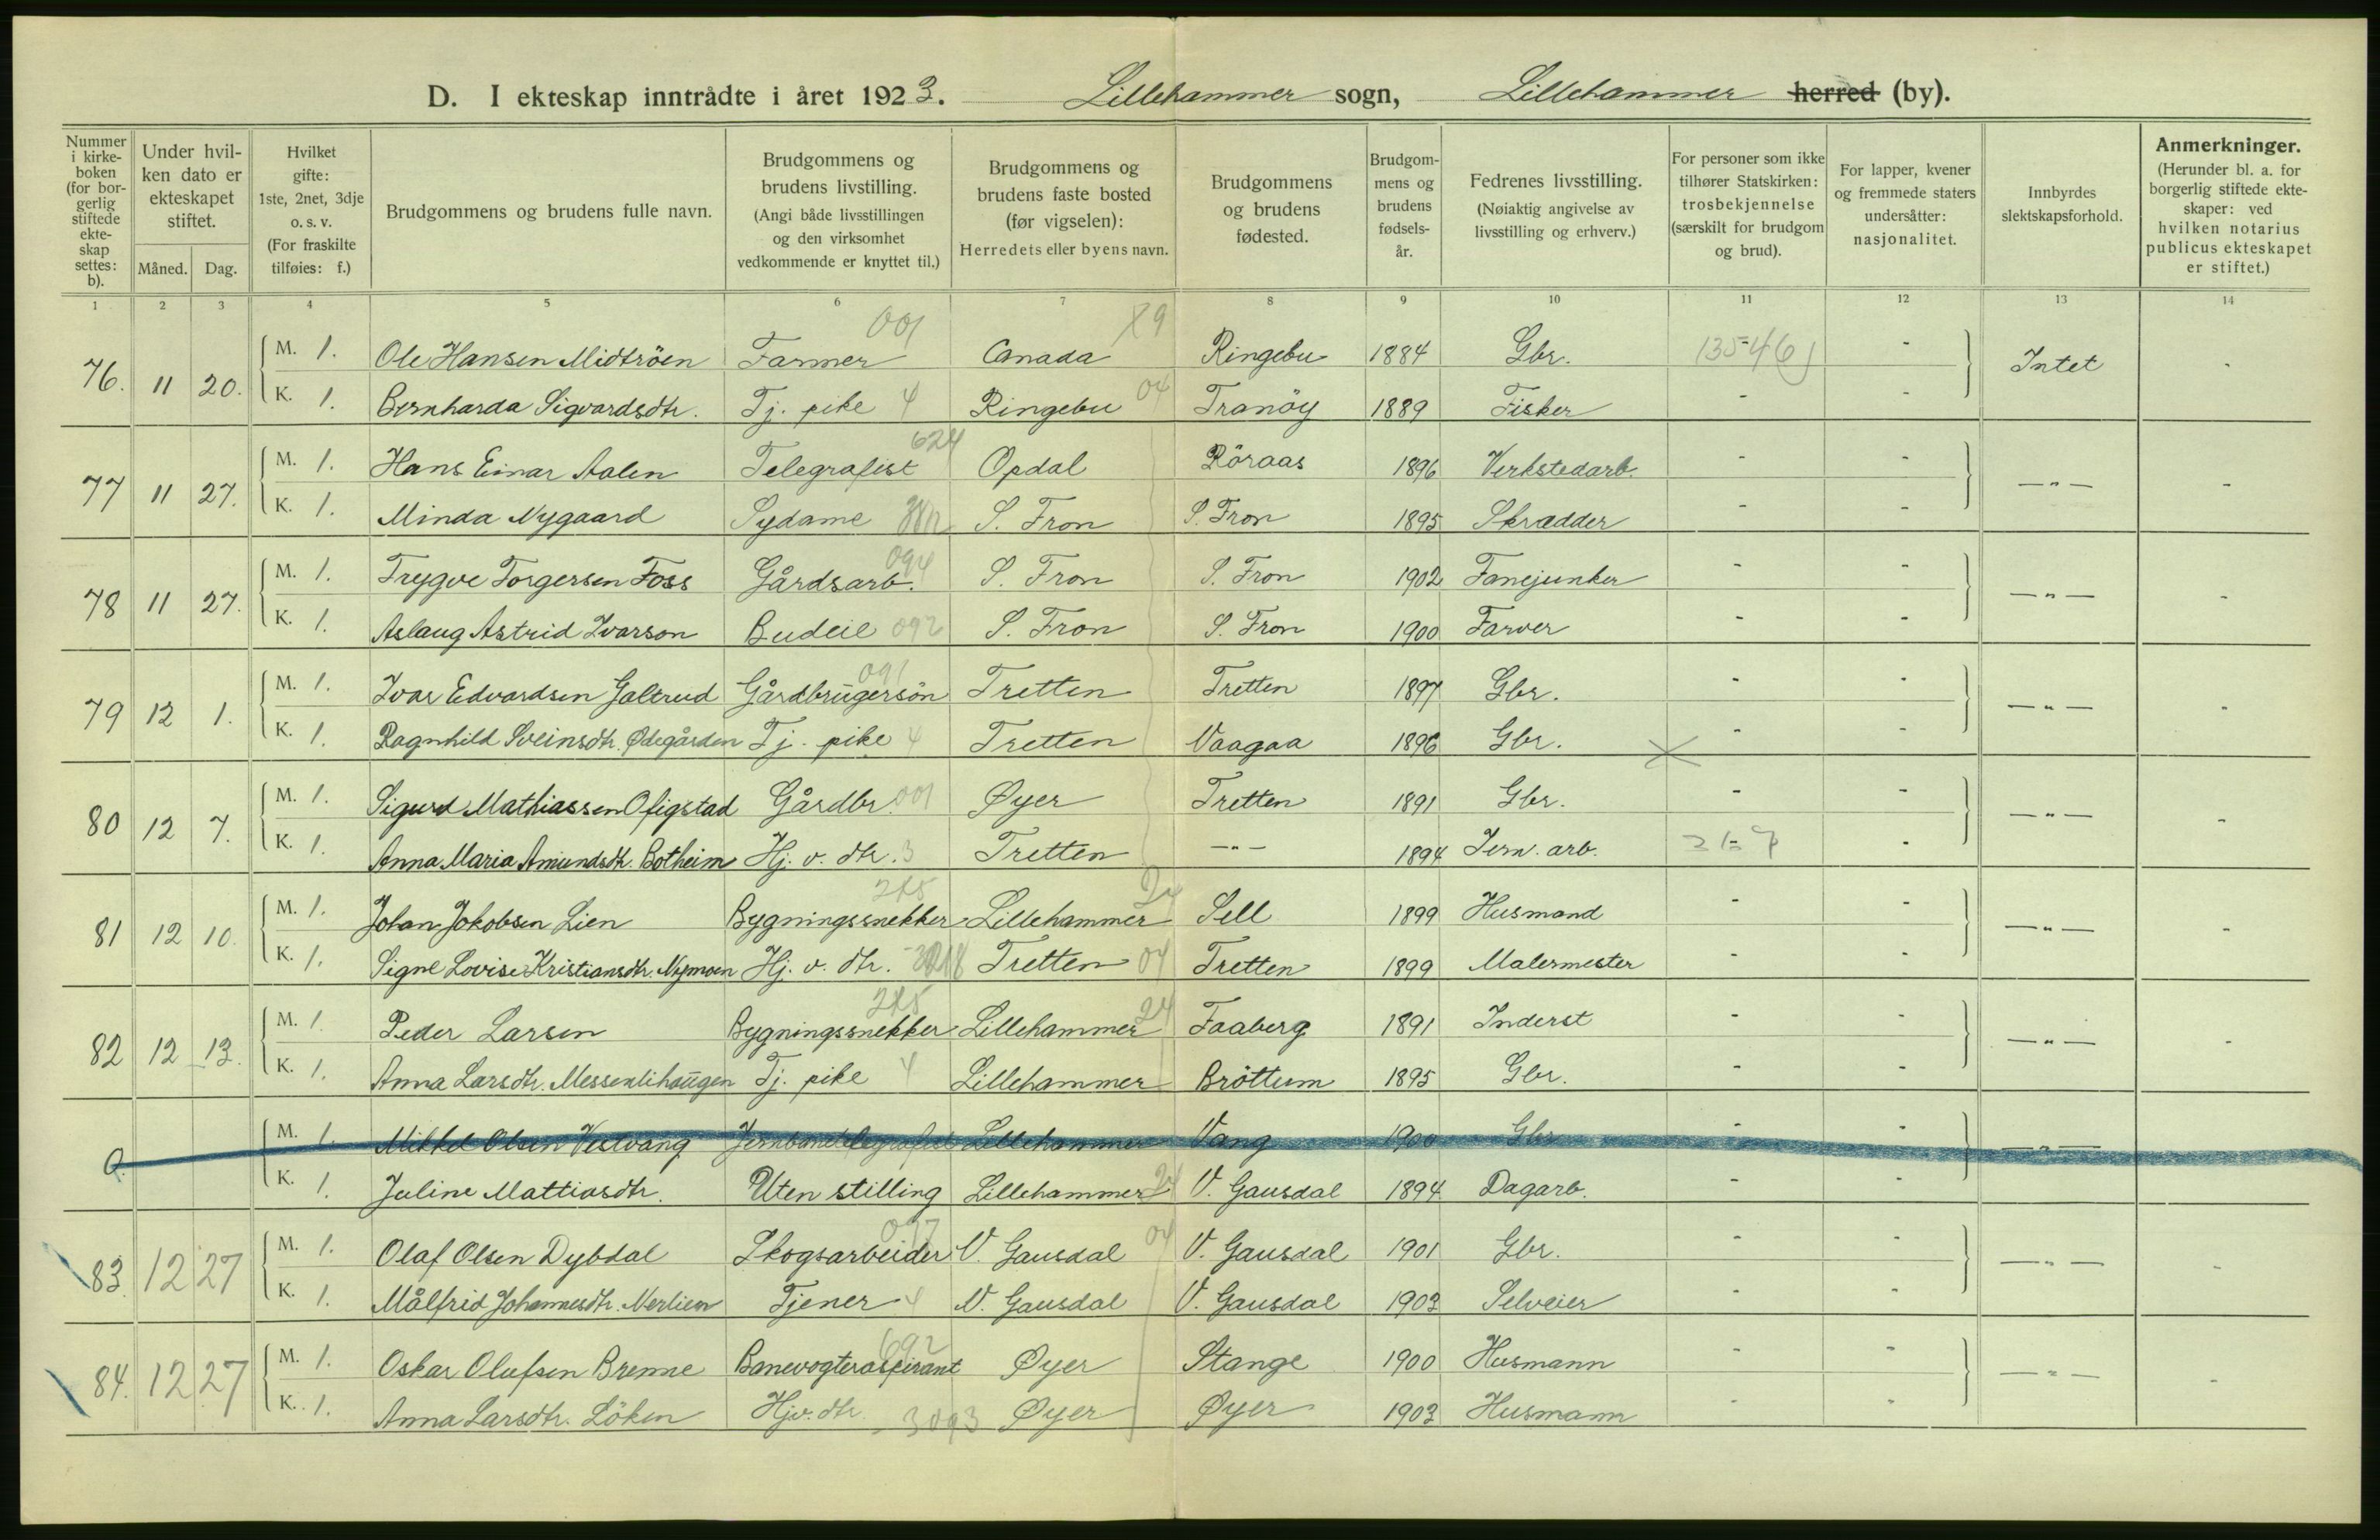 D. I ekteskap inntrådte i året 1923. Lillehammer sogn, Lillehammer herred (by).
Nummer i kirkeboken (for borgerlig stiftede ekteskap settes: b).
Under hvilken dato er ekteskapet stiftet.
Måned. Dag.
Hvilket gifte: 1ste, 2net, 3dje o. s. v. (For fraskilte tilføies: f.)
Brudgommens og brudens fulle navn.
Brudgommens og brudens livstilling. (Angi både livsstillingen og den virksomhet vedkommende er knyttet til.)
Brudgommens og brudens faste bosted (før vigselen): Herredets eller byens navn.
Brudgommens og brudens fødested.
Brudgommens og brudens fødselsår.
Fedrenes livsstilling. (Nøiaktig angivelse av livsstilling og erhverv.)
For personer som ikke tilhører Statskirken: trosbekjennelse (særskilt for brudgom og brud).
For lapper, kvener og fremmede staters undersåtter: nasjonalitet.
Innbyrdes slektskapsforhold.
Anmerkninger. (Herunder bl. a. for borgerlig stiftede ekteskaper: ved hvilken notarius publicus ekteskapet er stiftet.)
1 2 3 4 5 6 7 8 9 10 11 12 13 14
76. 11 20. M. 1. Ole Hansen Midtröen Farmer 001 Canada Ringebu 1884 Gbr. - Intet -
K. 1. Bernharda Sigvardsdtr. Tj. pike 4 Ringebu 04 Tranöy 1889 Fisker - -
77 11 27. M. 1. Hans Einar Aalen Telegrafist 624 Opdal Röraas 1896 Verkstedarb. - - —"— -
K. 1. Minda Nygaard Sydame S. Fron S. Fron 1895 Skrædder - -
78 11 27. M. 1. Trygve Torgersen Foss Gårdsarb. 094 S. Fron S. Fron 1902 Fanejunker - - —"— -
K. 1. Aslaug Astrid Ivarson Budeie 092 S. Fron S. Fron 1900 Farver - -
79 12 1. M. 1. Ivar Edvardsen Galtrud Gårdbrugersön 091 Tretten Tretten 1897 Gbr. - - —"— -
K. 1. Ragnhild Sveinsdtr. Ødegården Tj. pike 4 Tretten Vaagaa 1896 Gbr. - -
80 12 7. M. 1. Sigurd Mathiassen Ofigstad Gårdbr. 001 Øyer Tretten 1891 Gbr. - - —"— -
K. 1. Anna Maria Amundsdtr. Botheim Hj. v. dtr. 3 Tretten —"— 1894 Jern. arb. -
81 12 10. M. 1. Johan Jokobsen Lien Bygningssnekker Lillehammer 24 Sell 1899 Husmand - - —"— -
K. 1. Signe Lovise Kristiansdtr. Nymoen Hj. v. dtr. Tretten 04 Tretten 1899 Malermester - -
82 12 13. M. 1 Peder Larsen Bygningssnekker Lillehammer 24 Faaberg 1891 Inderst - - —"— -
K. 1. Anna Larsdtr. Messenlihaugen Tj. pike 4 Lillehammer Bröttum 1895 Gbr. - -
M. 1. Mikkel Olsen Vestvang Jernbanetelegrafist Lillehammer Vang 1900 Gbr - - —"—
K. 1. Juline Mattiasdtr. Uten stilling Lillehammer 24 V. Gausdal 1894. Dagarb. - -
83. 12 27 M. 1. Olaf Olsen Dybdal Skogsarbeider V. Gausdal 04 V. Gausdal 1901 Gbr. - - —"— -
K. 1. Målfrid Johannesdtr. Nerlien Tjener 4 V. Gausdal V. Gausdal 1903 Selveier - -
84. 12 27 M. 1. Oskar Olufsen Brenne Banevogteraspirant 692 Øyer Stange 1900 Husmann - - —"— -
K. 1. Anna Larsdtr. Löken Hjv. dtr. 3093 Øyer Øyer 1903 Husmann - -